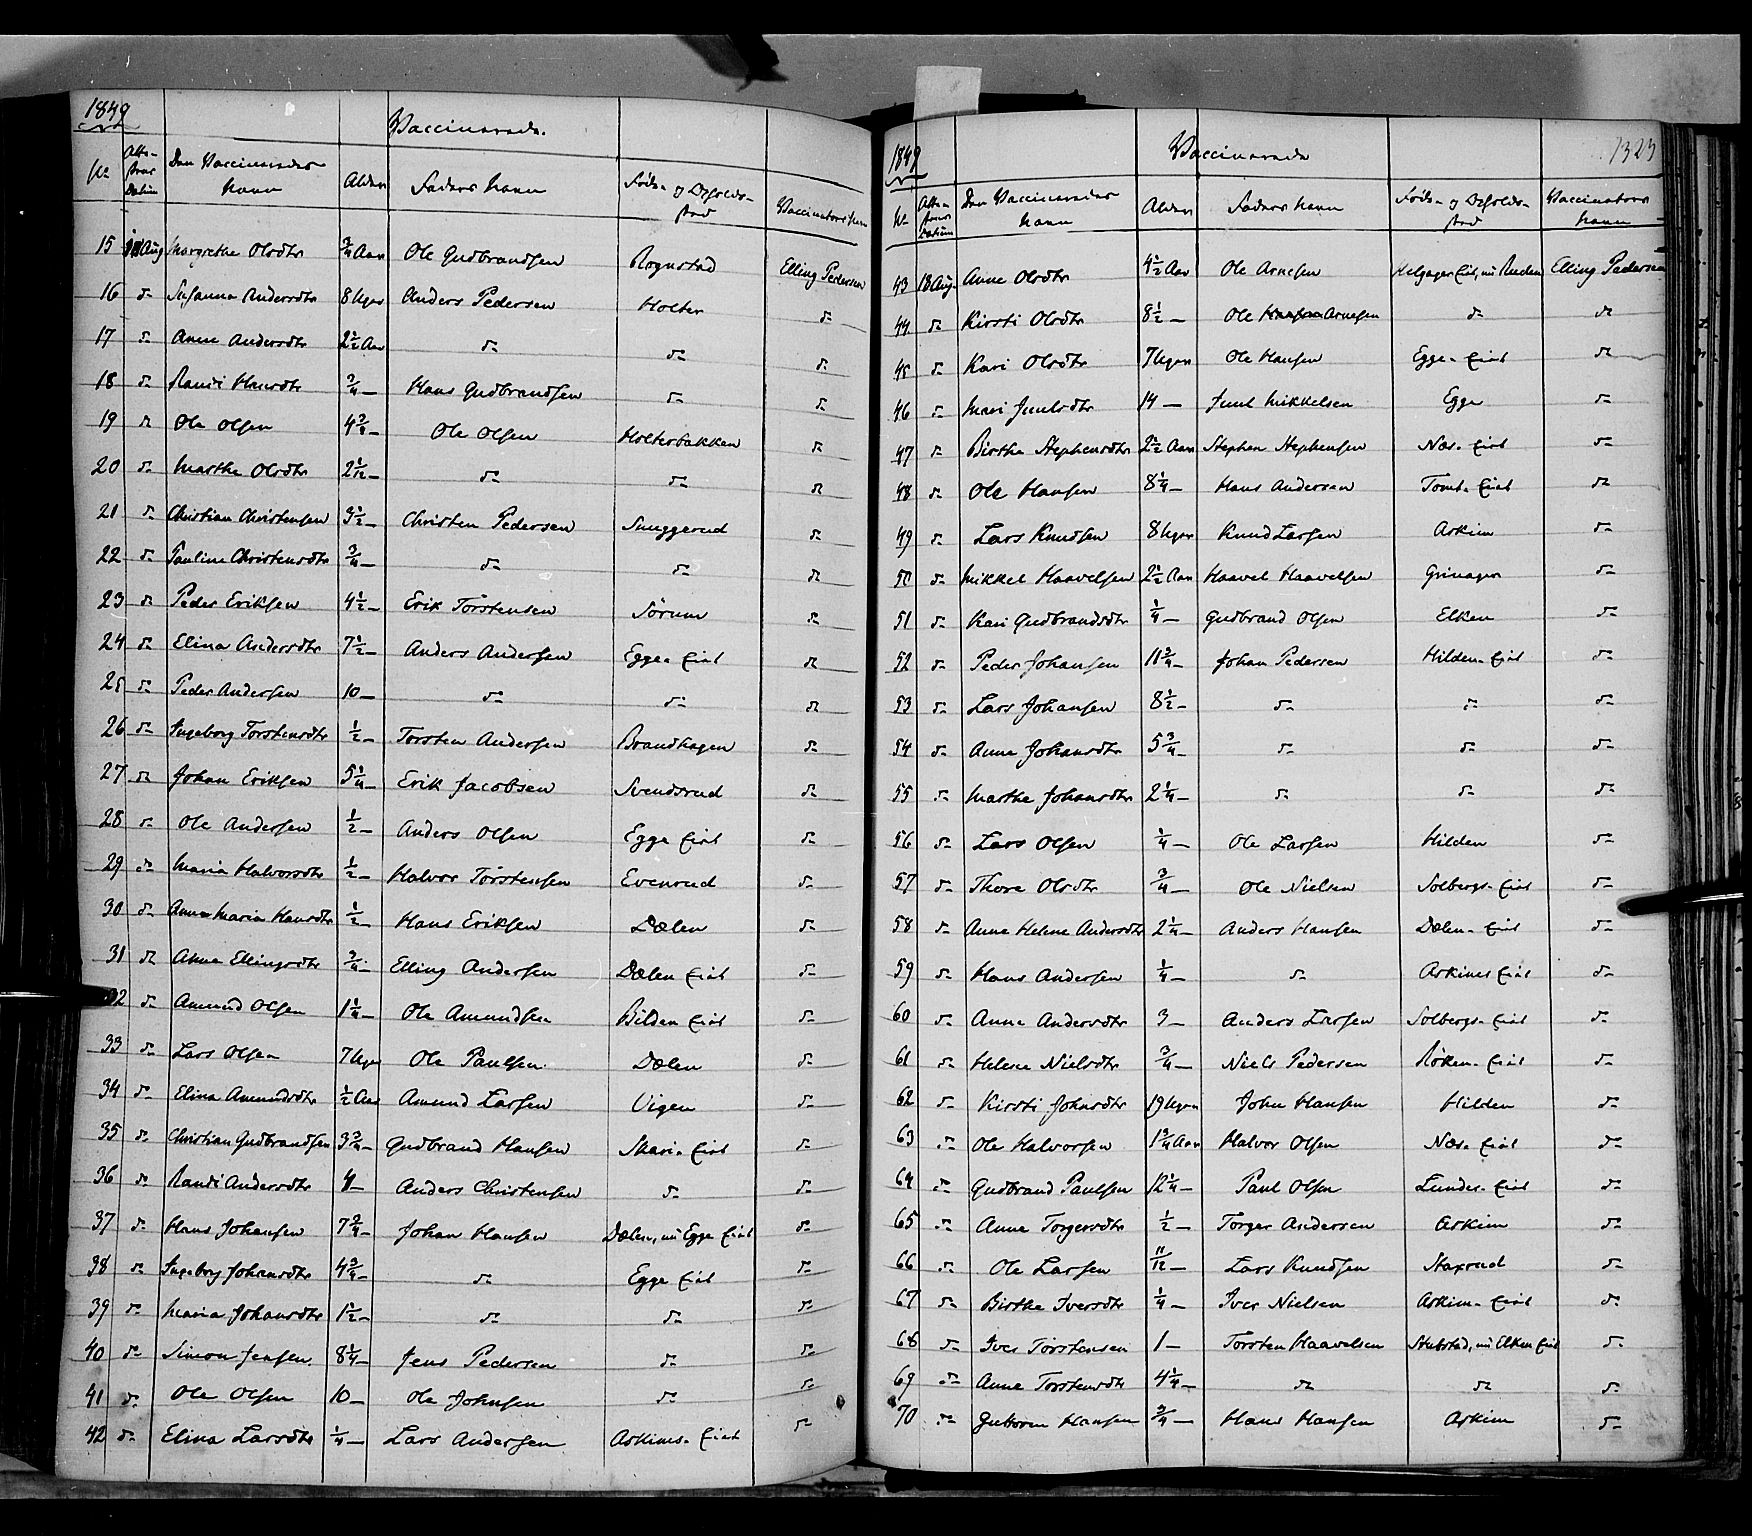 1849
Vaccinerede.
No Atte- stens Datum Den Vaccineredes Navn Alder Faders Navn Føde- og Opholds- sted Vaccinators Navn
15 18 Aug Margrethe Olsdtr 3/4 Aar Ole Gudbrandsen Rognstad Elling Pedersen
16 do Susanna Andersdtr 8 Uger Anders Pedersen Holter do
17 do Anne Andersdtr 2 1/2 Aar do do do
18 do Randi Hansdtr 3/4 – Hans Gudbrandsen do do
19 do Ole Olsen 4 3/4 – Ole Olsen Holterbakken do
20 do Marthe Olsdtr 2 1/12 – do do do
21 do Christian Christensen 3 1/2 – Christen Pedersen Snuggerud do
22 do Pauline Christensdtr 3/4 – do do do
23 do Peder Eriksen 4 1/2 – Erik Torstensen Sørum do
24 do Elina Andersdtr 7 1/2 – Anders Andersen Egge- Eiet do
25 do Peder Andersen 10 – do do do
26 do Ingeborg Torstensdtr 1/2 – Torsten Andersen Brandhagen do
27 do Johan Eriksen 5 1/4 – Erik Jacobsen Svendsrud do
28 do Ole Andersen 1/2 – Anders Olsen Egge Eiet do
29 do Maria Halvorsdtr 1/2 – Halvor Torstensen Evenrud do
30 do Anne Maria Hansdtr 1/2 – Hans Eriksen Dælen do
31 do Anne Ellingsdtr 3/4 – Elling Andersen Dælen Eiet do
32 do Amund Olsen 1 1/4 – Ole Amundsen Bilden Eiet do
33 do Lars Olsen 7 Uger Ole Paulsen Dælen do
34 do Elina Amundsdtr 1/2 Aar Amund Larsen Vigen do
35 do Christian Gudbrandsen 3 3/4 – Gudbrand Hansen Skari- Eiet do
36 do Randi Andersdtr 4 – Anders Christensen do do
37 do Hans Johansen 7 3/4 – Johan Hansen Dælen, nu Egge Eiet do
38 do Ingeborg Johansdtr 4 3/4 – do Egge Eiet do
39 do Maria Johansdtr 1 1/2 – do do do
40 do Simon Jensen 8 1/4 – Jens Pedersen do do
41 do Ole Olsen 10 – Ole Johnsen do do
42 do Elina Larsdtr 1/4 – Lars Andersen Askims- Eiet do
1849
Vaccinerede
No Atte- stens Datum Den Vaccineredes Navn Alder Faders Navn Føde- og Opholds- sted Vaccinators Navn
43 18 Aug. Anne Olsdtr 4 1/2 Aar Ole Arnesen Helgager Eiet, nu Elling Pedersen
44 do Kirsti Olsdtr 8 1/2 – Ole Arnesen do do
45 do Kari Olsdtr 7 Uger Ole Hansen Egge- Eiet do
46 do Mari Juulsdtr 14 – Juul Mikkelsen Egge do
47 do Birthe Stephensdtr 2 1/2 Aar Stephen Stephensen Næs- Eiet do
48 do Ole Hansen 8 1/4 – Hans Andersen Tomt- Eiet do
49 do Lars Knudsen 8 Uger Knud Larsen Askim do
50 do Mikkel Haavelsen 2 1/2 Aar Haavel Haavelsen Grinager do
51 do Kari Gudbrandsdtr 1/4 – Gudbrand Olsen Elken do
52 do Peder Johansen 11 3/4 – Johan Pedersen Hilden- Eiet do
53 do Lars Johansen 8 1/2 – do do do
54 do Anne Johansdtr 5 3/4 – do do do
55 do Marthe Johansdtr 2 1/4 – do do do
56 do Lars Olsen 1/4 – Ole Larsen Hilden do
57 do Thore Olsdtr 3/4 – Ole Nielsen Solbergs- Eiet do
58 do Anne Helene Andersdtr 2 1/4 – Anders Hansen Dælen- Eiet do
59 do Hans Andersen 1/4 – do Askims Eiet do
60 do Anne Andersdtr 3 – Anders Larsen Solbergs- Eiet do
61 do Helene Nielsdtr 3/4 – Niels Pedersen Røken- Eiet do
62 do Kirsti Johnsdtr 19 Uger John Hansen Hilden do
63 do Ole Halvorsen 1 3/4 Aar Halvor Olsen Næs- Eiet do
64 do Gudbrand Paulsen 12 1/4 – Paul Olsen Lunder- Eiet do
65 do Anne Torgersdtr 1/2 – Torger Andersen Askim do
66 do Ole Larsen 11/12 – Lars Knudsen Staxrud do
67 do Birthe Iversdtr 1/4 – Iver Nielsen Askim- Eiet do
68 do Iver Torstensen 1 – Torsten Haavelsen Stubstad, nu Elken Eiet do
69 do Anne Torstensdtr 4 1/4 – do do do
70 do Guttorm Hansen 3/4 – Hans Hansen Askim do